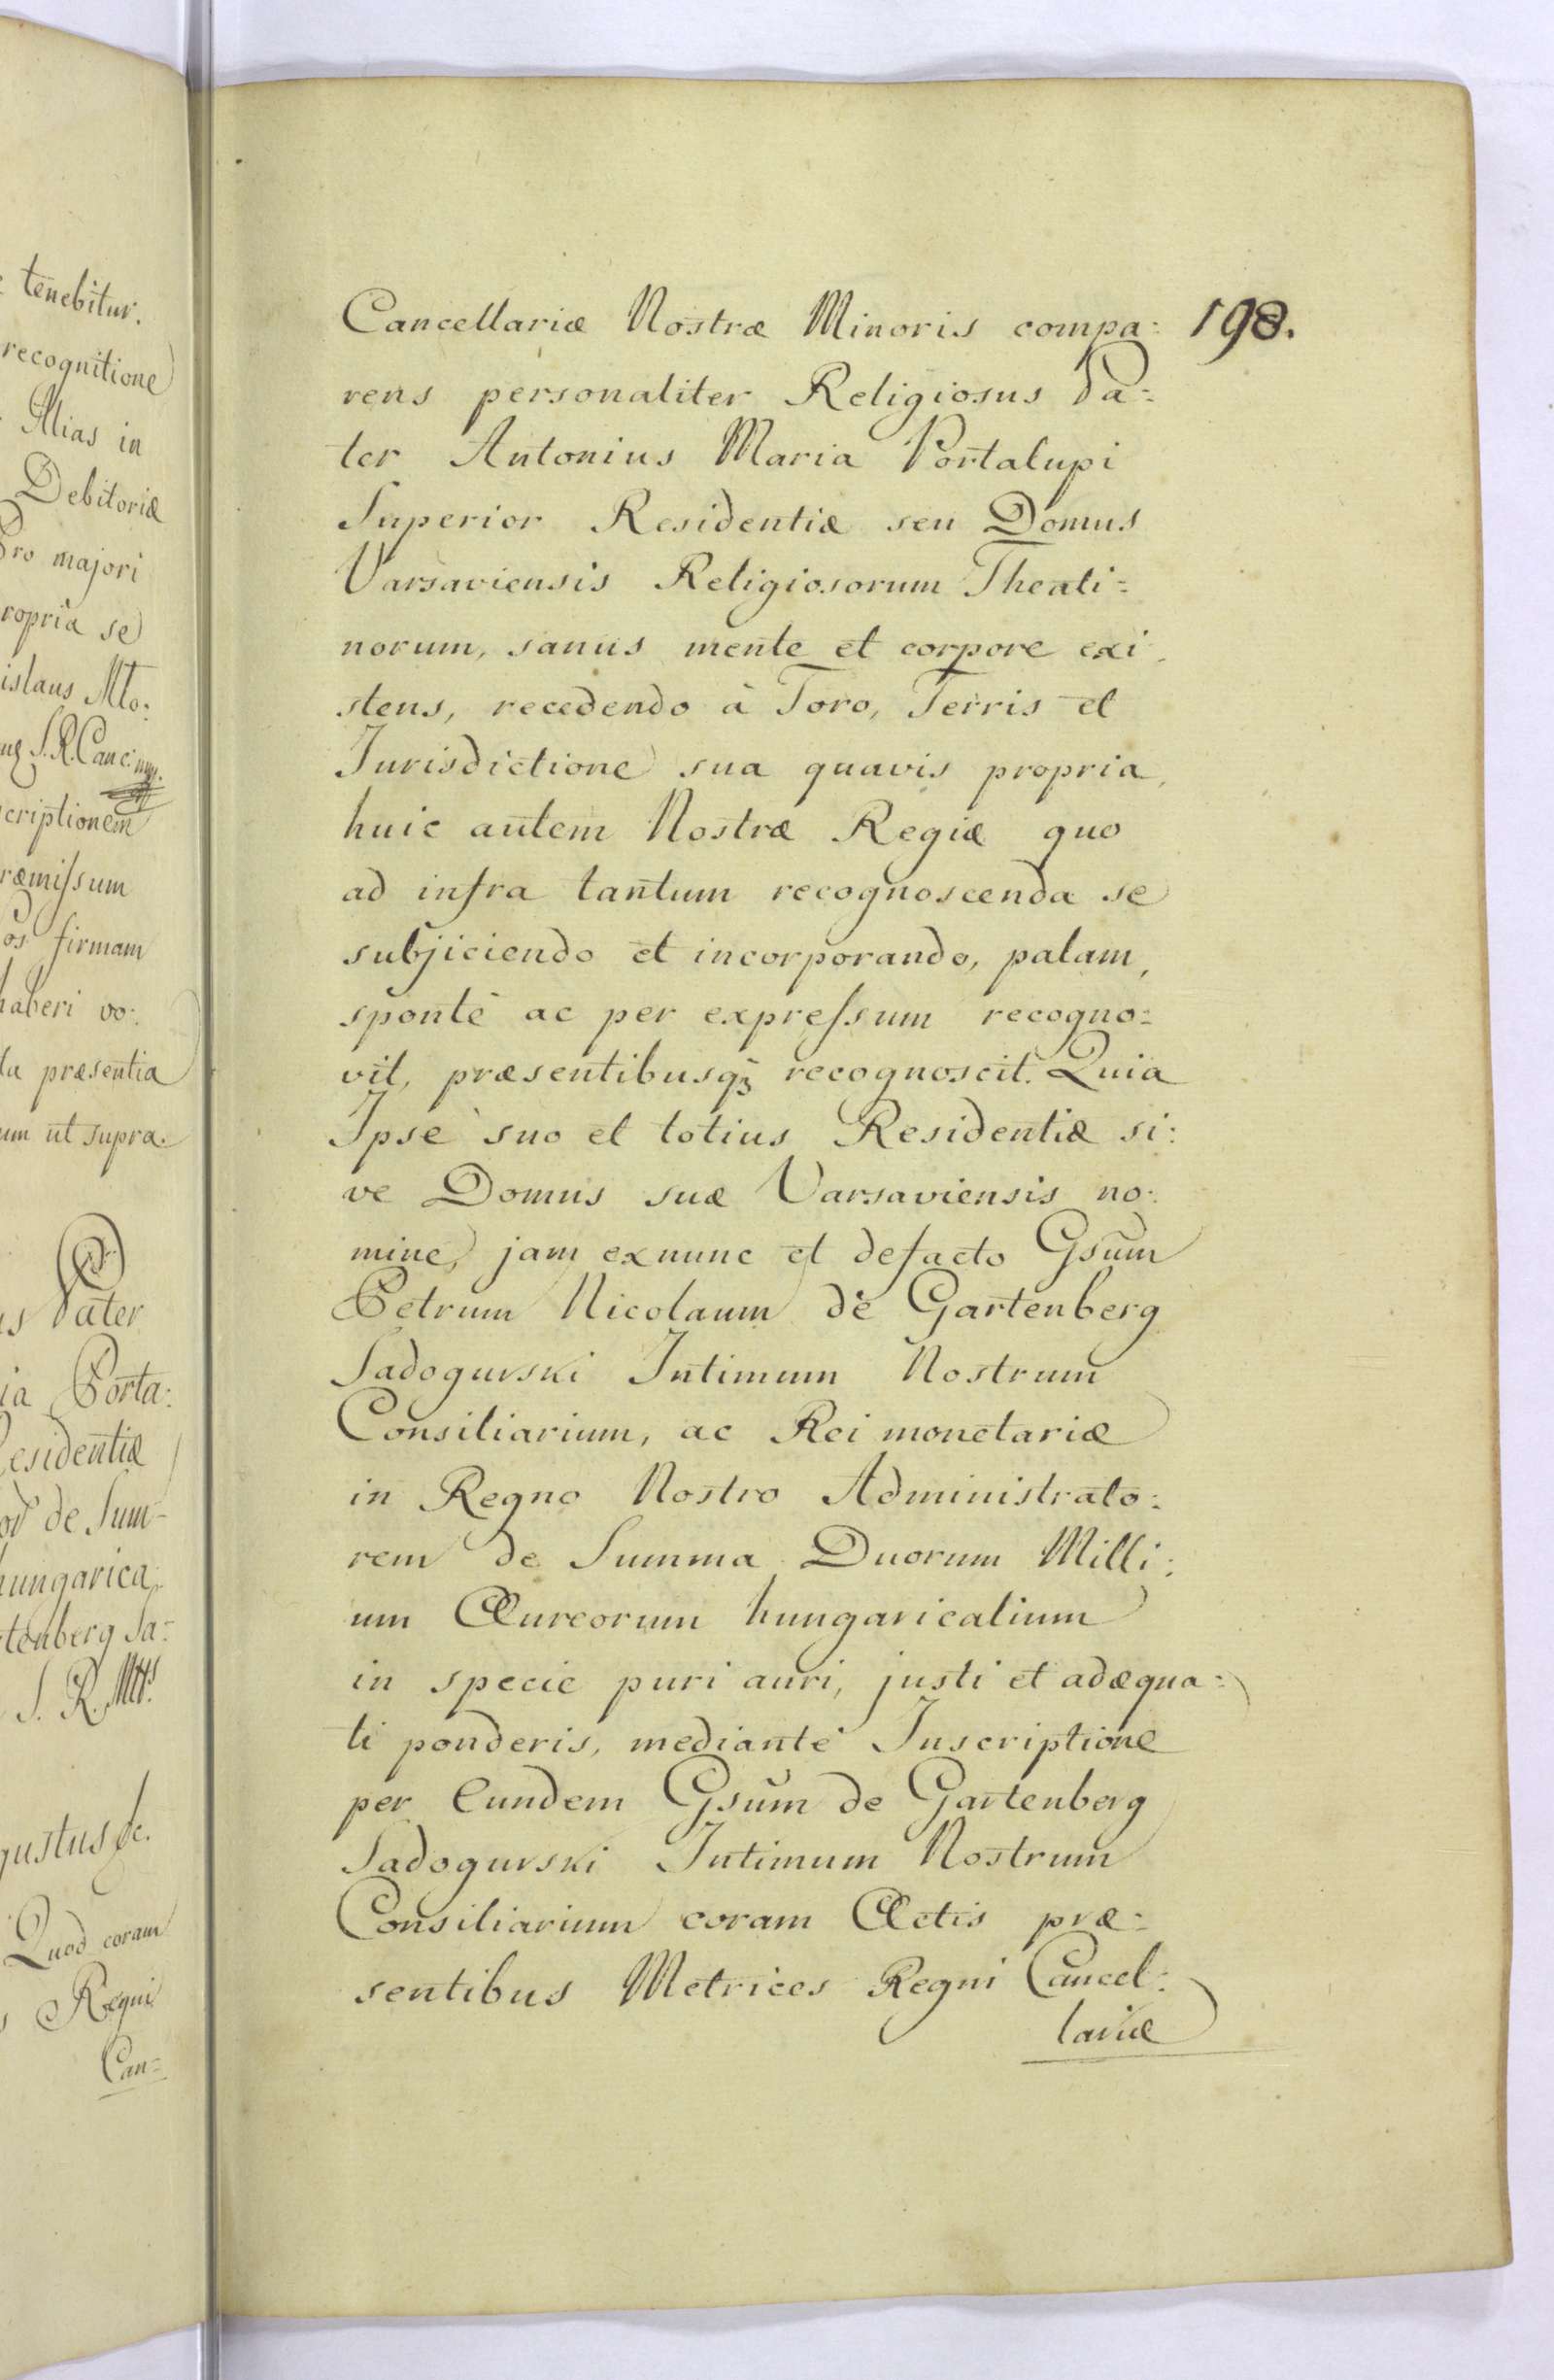 tenebitur.
recognitione
Alias in
Debitoriæ
Pro majori
ropria se
islaus Mło:
S. R. Canc:
criptionem
ræmiſsum
os firmam
haberi vo:
præsentia
um ut supra.
Pater
ia Porta:
esidentiæ
de Sum-
hungarica
tenberg Sa:
S. R. Mtis
gustus &c.
Quod coram
Regni
Can=
198.
Cancellariæ Nostræ Minoris compa:
rens personaliter Religiosus Pa:
ter Antonius Maria Portalupi
Superior Residentiæ seu Domus
Varsaviensis Religiosorum Theati=
norum, sanus mente et corpore exi
stens, recedendo à Foro, Terris et
Jurisdictione sua quavis propria,
huic autem Nostræ Regiæ quo
ad infra tantum recognoscenda se
subjiciendo et incorporando, palam,
sponte ac per expreſsum recogno=
vit, præsentibusqꝫ recognoscit. Quia
Ipse suo et totius Residentiæ si:
ve Domus suæ Varsaviensis no:
mine, jam exnunc et defacto Gsum
Petrum Nicolaum de Gartenberg
Sadogurski Intimum Nostrum
Consiliarium, ac Rei monetariæ
in Regno Nostro Administrato:
rem de Summa Duorum Milli:
um Aureorum hungaricalium
in specie puri auri, justi et adæqua=
ti ponderis, mediante Inscriptione
per Eundem Gsum de Gartenberg
Sadogurski Intimum Nostrum
Consiliarium coram Actis præ=
sentibus Metrices Regni Cancel:
lariæ